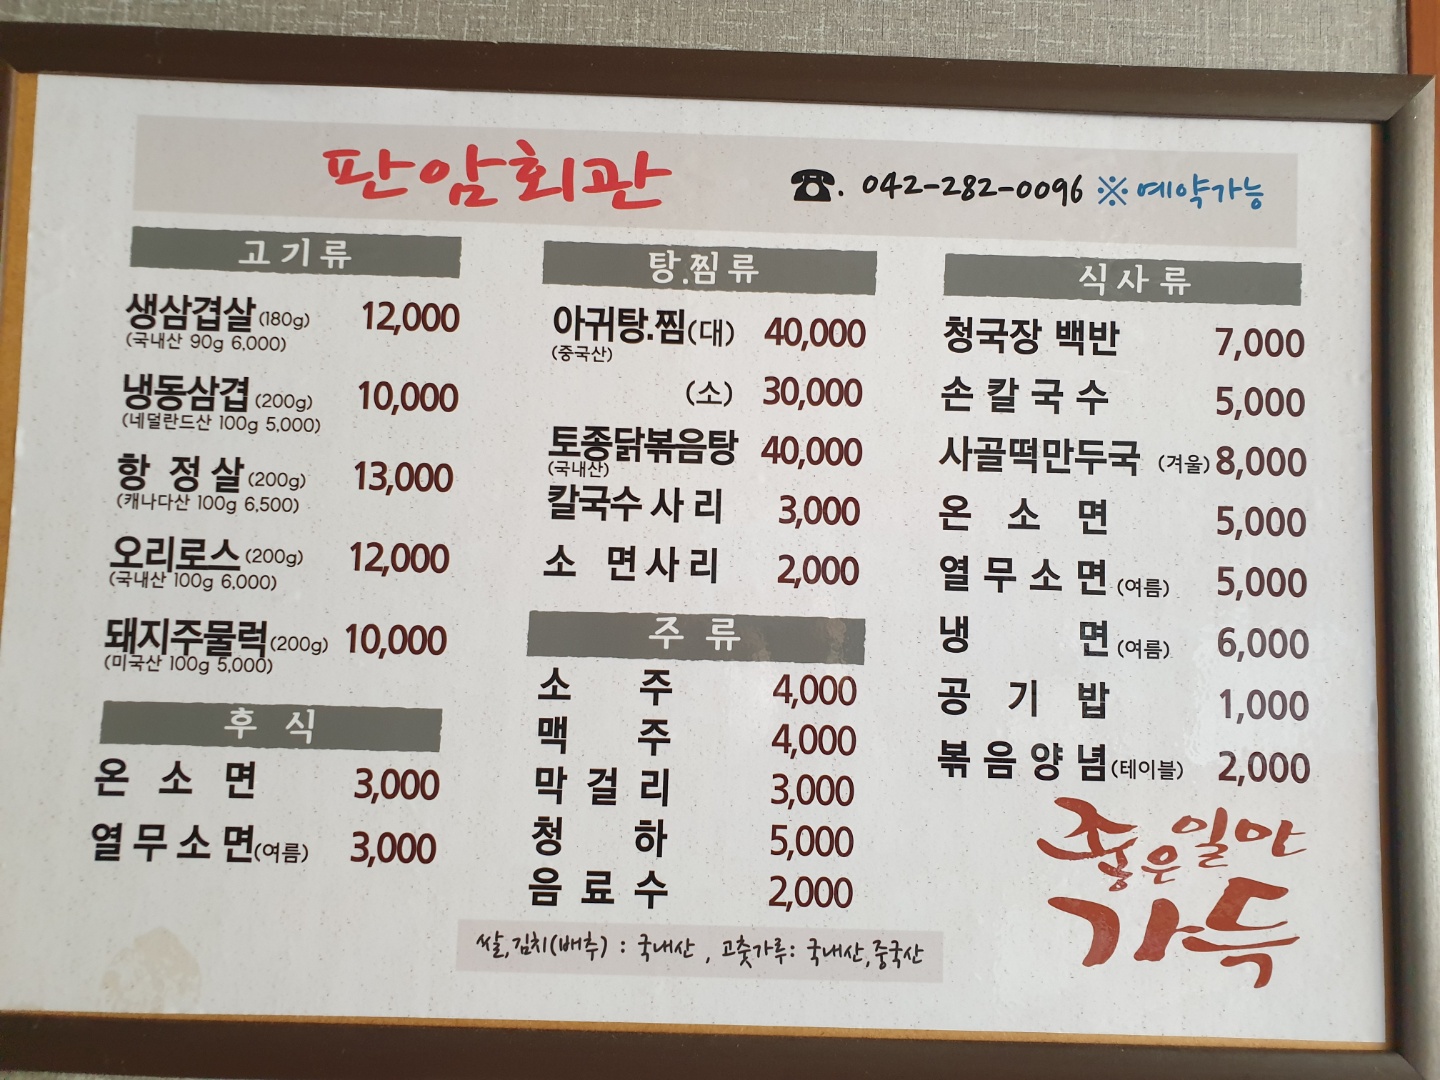 판암회관
☎. 042-282-0096 ※예약가능
고기류
생삼겹살(180g) 12,000
(국내산 90g 6,000)
냉동삼겹(200g) 10,000
(네덜란드산 100g 5,000)
항정살(200g) 13,000
(캐나다산 100g 6,500)
오리로스(200g) 12,000
(국내산 100g 6,000)
돼지주물럭(200g) 10,000
(미국산 100g 5,000)
후식
온소면 3,000
열무소면(여름) 3,000
탕.찜류
아귀탕.찜(대) 40,000
(중국산)
(소) 30,000
토종닭볶음탕 40,000
(국내산)
칼국수사리 3,000
소면사리 2,000
주류
소주 4,000
맥주 4,000
막걸리 3,000
청하 5,000
음료수 2,000
식사류
청국장 백반 7,000
손칼국수 5,000
사골떡만두국 (겨울) 8,000
온소면 5,000
열무소면(여름) 5,000
냉면(여름) 6,000
공기밥 1,000
볶음양념(테이블) 2,000
좋은일만
가득
쌀,김치(배추) : 국내산 , 고춧가루: 국내산,중국산